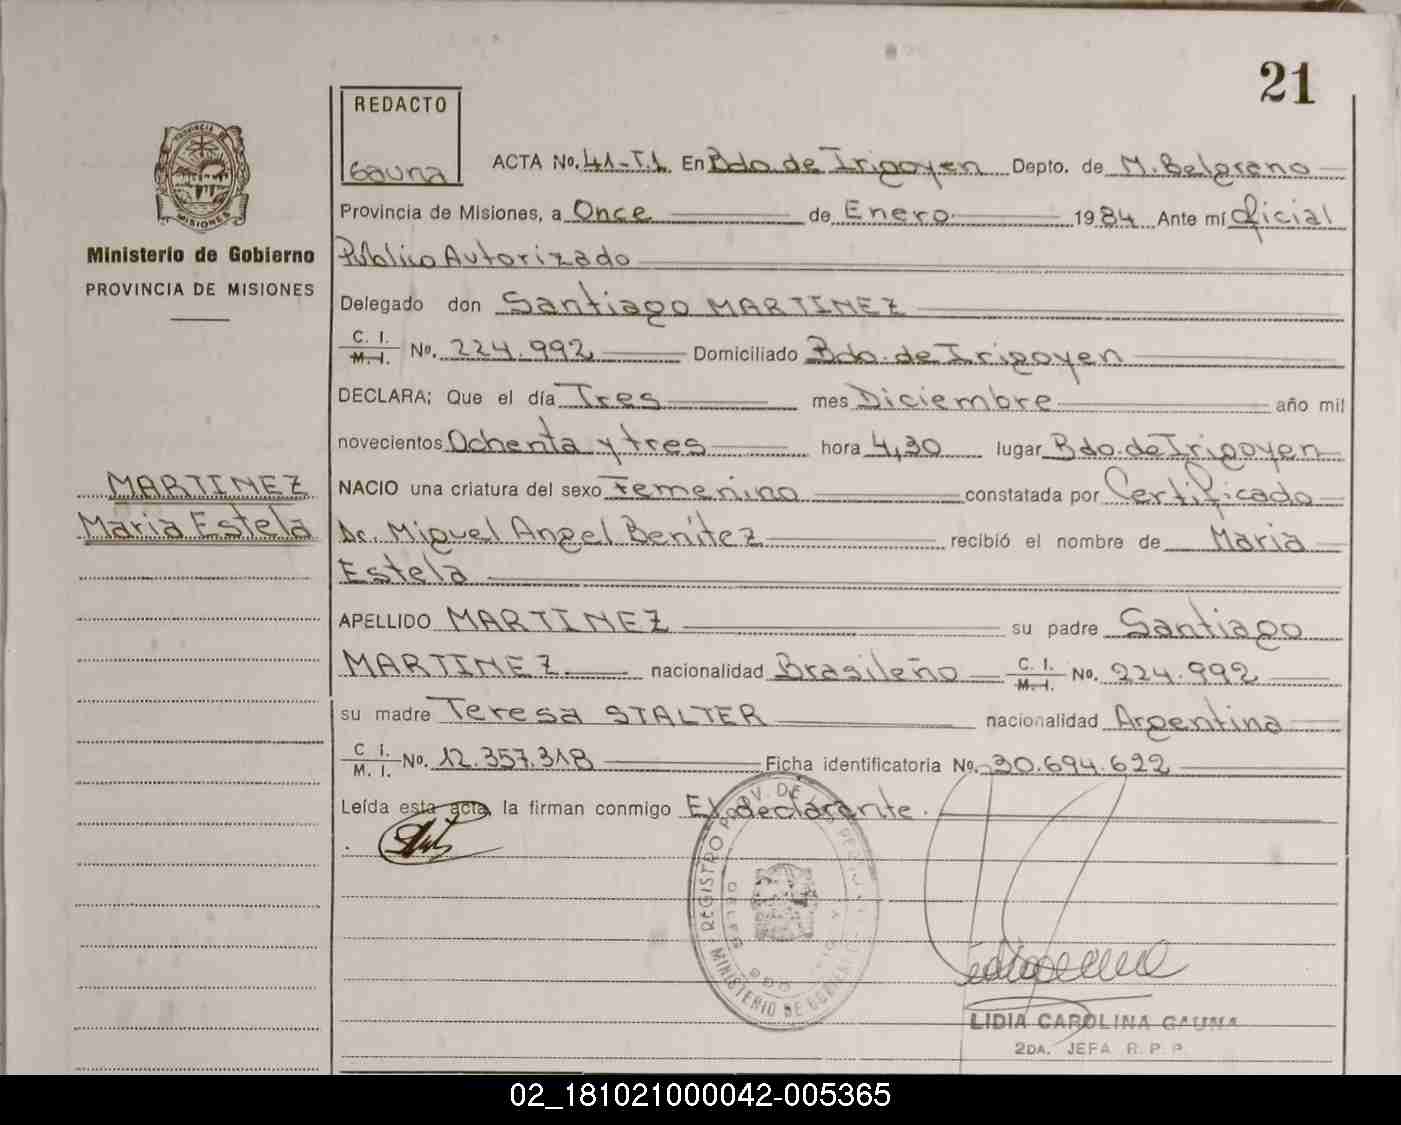 21
REDACTO
Gauna
ACTA No. 41-T.1 En Bdo de Irigoyen Depto. de M. Belgrano
Provincia de Misiones, a Once de Enero 1984 Ante mí Oficial
Público Autorizado
Ministerio de Gobierno
PROVINCIA DE MISIONES
Delegado don Santiago MARTINEZ
C. I. M. I. No. 224.992 Domiciliado Bdo. de Irigoyen
DECLARA; Que el día Tres mes Diciembre año mil
novecientos Ochenta y tres hora 4,30 lugar Bdo. de Irigoyen
MARTINEZ
Maria Estela
NACIO una criatura del sexo Femenino constatada por Certificado
Dr. Miguel Angel Benítez recibió el nombre de Maria
Estela
APELLIDO MARTINEZ su padre Santiago
MARTINEZ nacionalidad Brasileño C. I. M. I. No. 224.992
su madre Teresa STALTER nacionalidad Argentina
C. I. M. I. No. 12.357.318 Ficha identificatoria No. 30.694.622
Leída esta acta, la firman conmigo El declarante.
REGISTRO PROV. DE
MINISTERIO DE GOBIERNO
LIDIA CAROLINA GAUNA
2DA. JEFA R. P. P.
02_181021000042-005365